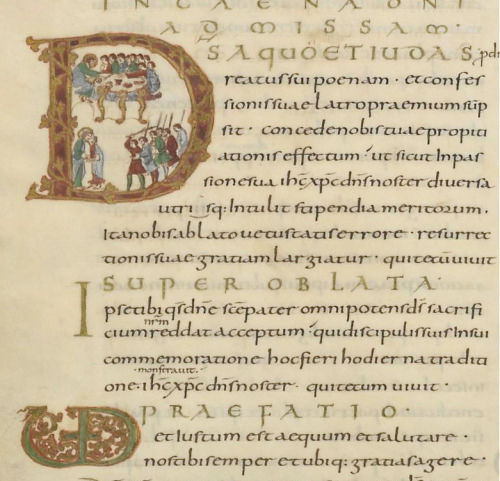 IN CAENA DNI
AD MISSAM·
DS A QUO ET IUDAS
reatus sui poenam · et confes
sionis suae latro praemium sūp
sit · concede nobis tuae propiti
ationis effectum · ut sicut in pas
sione sua ihc̄ xpc̄ dn̄s noster diversa
utrisq: intulit stipendia meritorum ·
Ita nobis ablato vetustatis errore · resurrec
tionis suae gratiam largiatur · qui tecū vivit
SUPER OBLATA
Ipse tibi qs̄ dn̄e scē pater omnipotens ds̄ sacrifi
nrm̄
cium reddat acceptum · qui discipulis suis in sui
commemoratione hoc fieri hodierna traditi
·monstravit·
one · ihc̄ xpc̄ dn̄s noster · qui tecum vivit ·
PRAEFATIO·
VD et iustum est aequum et salutare ·
nos tibi semper et ubiq: gratias agere ·